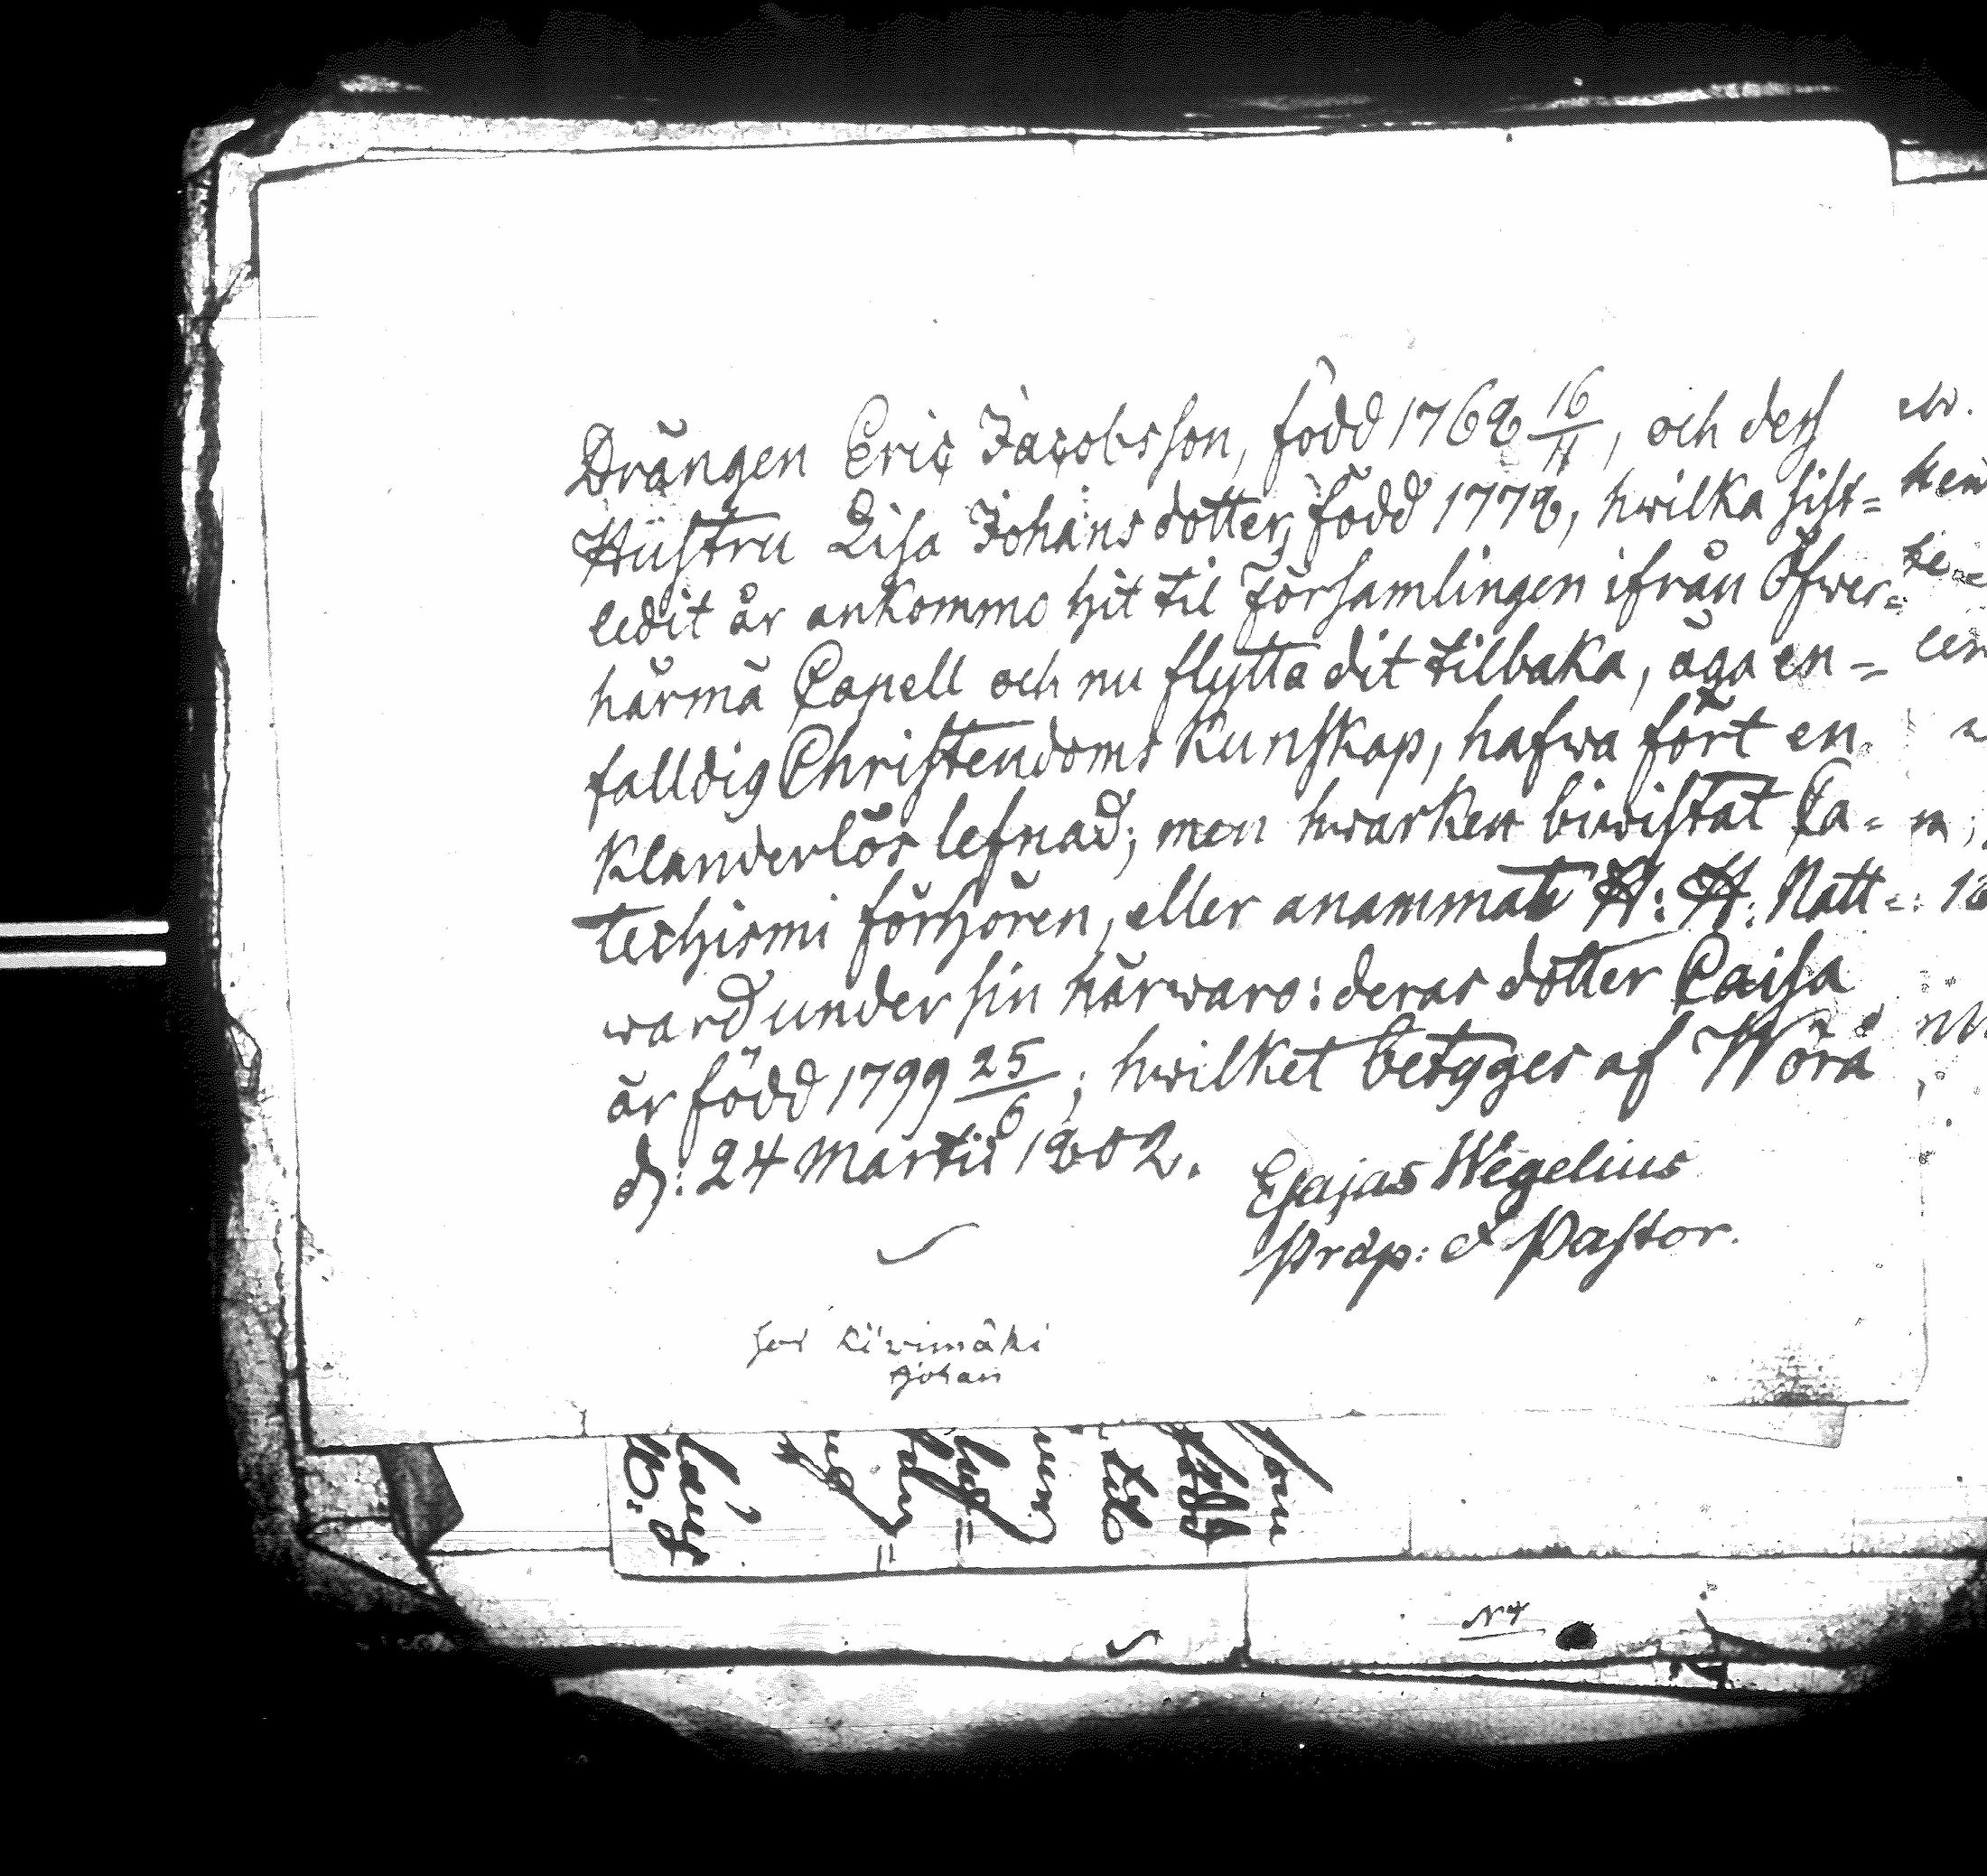 Drängen Eric Jacobsson, född 1768 16/11, och dess
Hustru Lisa Johansdotter, född 1778, hwilka sist=
ledit år ankommo hit til Församlingen ifrån Öfwer=
härmä Capell och nu flytta dit tilbaka, äga en=
falldig Christendoms kunskap, hafwa fört en
klanderlös lefnad; men hwarken biwistat Ca=
techismi förhören, eller anammat H: H: Natt=
ward under sin härwaro: deras dotter Caisa
är född 1799 25/6; hwilket betyges af Wörå
d: 24 Martii 1802.
Esajas Wegelius
Præp: & Pastor.
hos Kivimäki
Johan